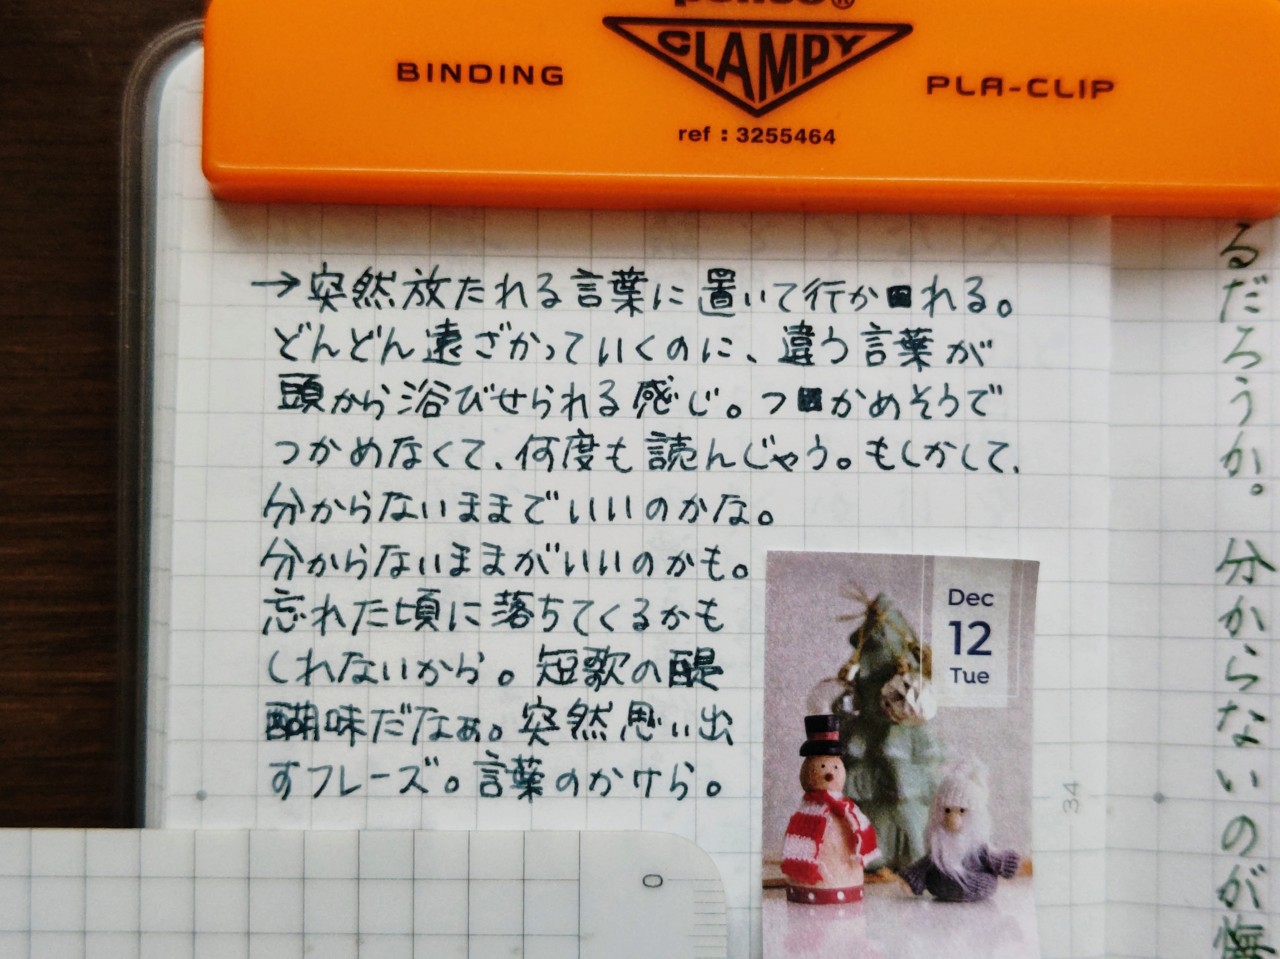 CLAMPY
BINDING
PLA-CLIP
ref : 3255464
→突然放たれる言葉に置いて行かれる。
どんどん遠ざかっていくのに、違う言葉が
頭から浴びせられる感じ。つかめそうで
つかめなくて、何度も読んじゃう。もしかして、
分からないままでいいのかな。
分からないままがいいのかも。
忘れた頃に落ちてくるかも
しれないから。短歌の醍
醐味だなぁ。突然思い出
すフレーズ。言葉のかけら。
Dec
12
Tue
34
0
るだろうか。分からないのが悔